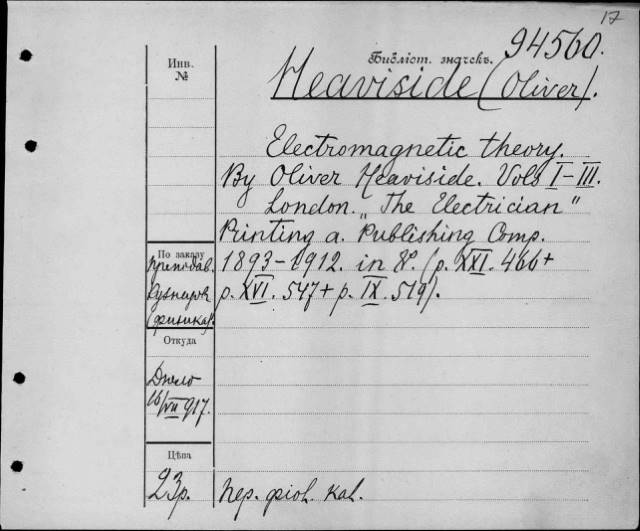 17
94560.
Инв.
№
Библіот. значекъ.
Heaviside (Oliver).
Electromagnetic theory.
By Oliver Heaviside. Vols I–III.
London. „The Electrician"
Printing a. Publishing Comp.
1893–1912. in 8º. (p. XXI. 466+
p. XVI. 547+ p. IX. 519).
По заказу
преподав.
(физика).
Откуда
16/VII 917.
Цѣна
23р.
пер. фіол. кал.